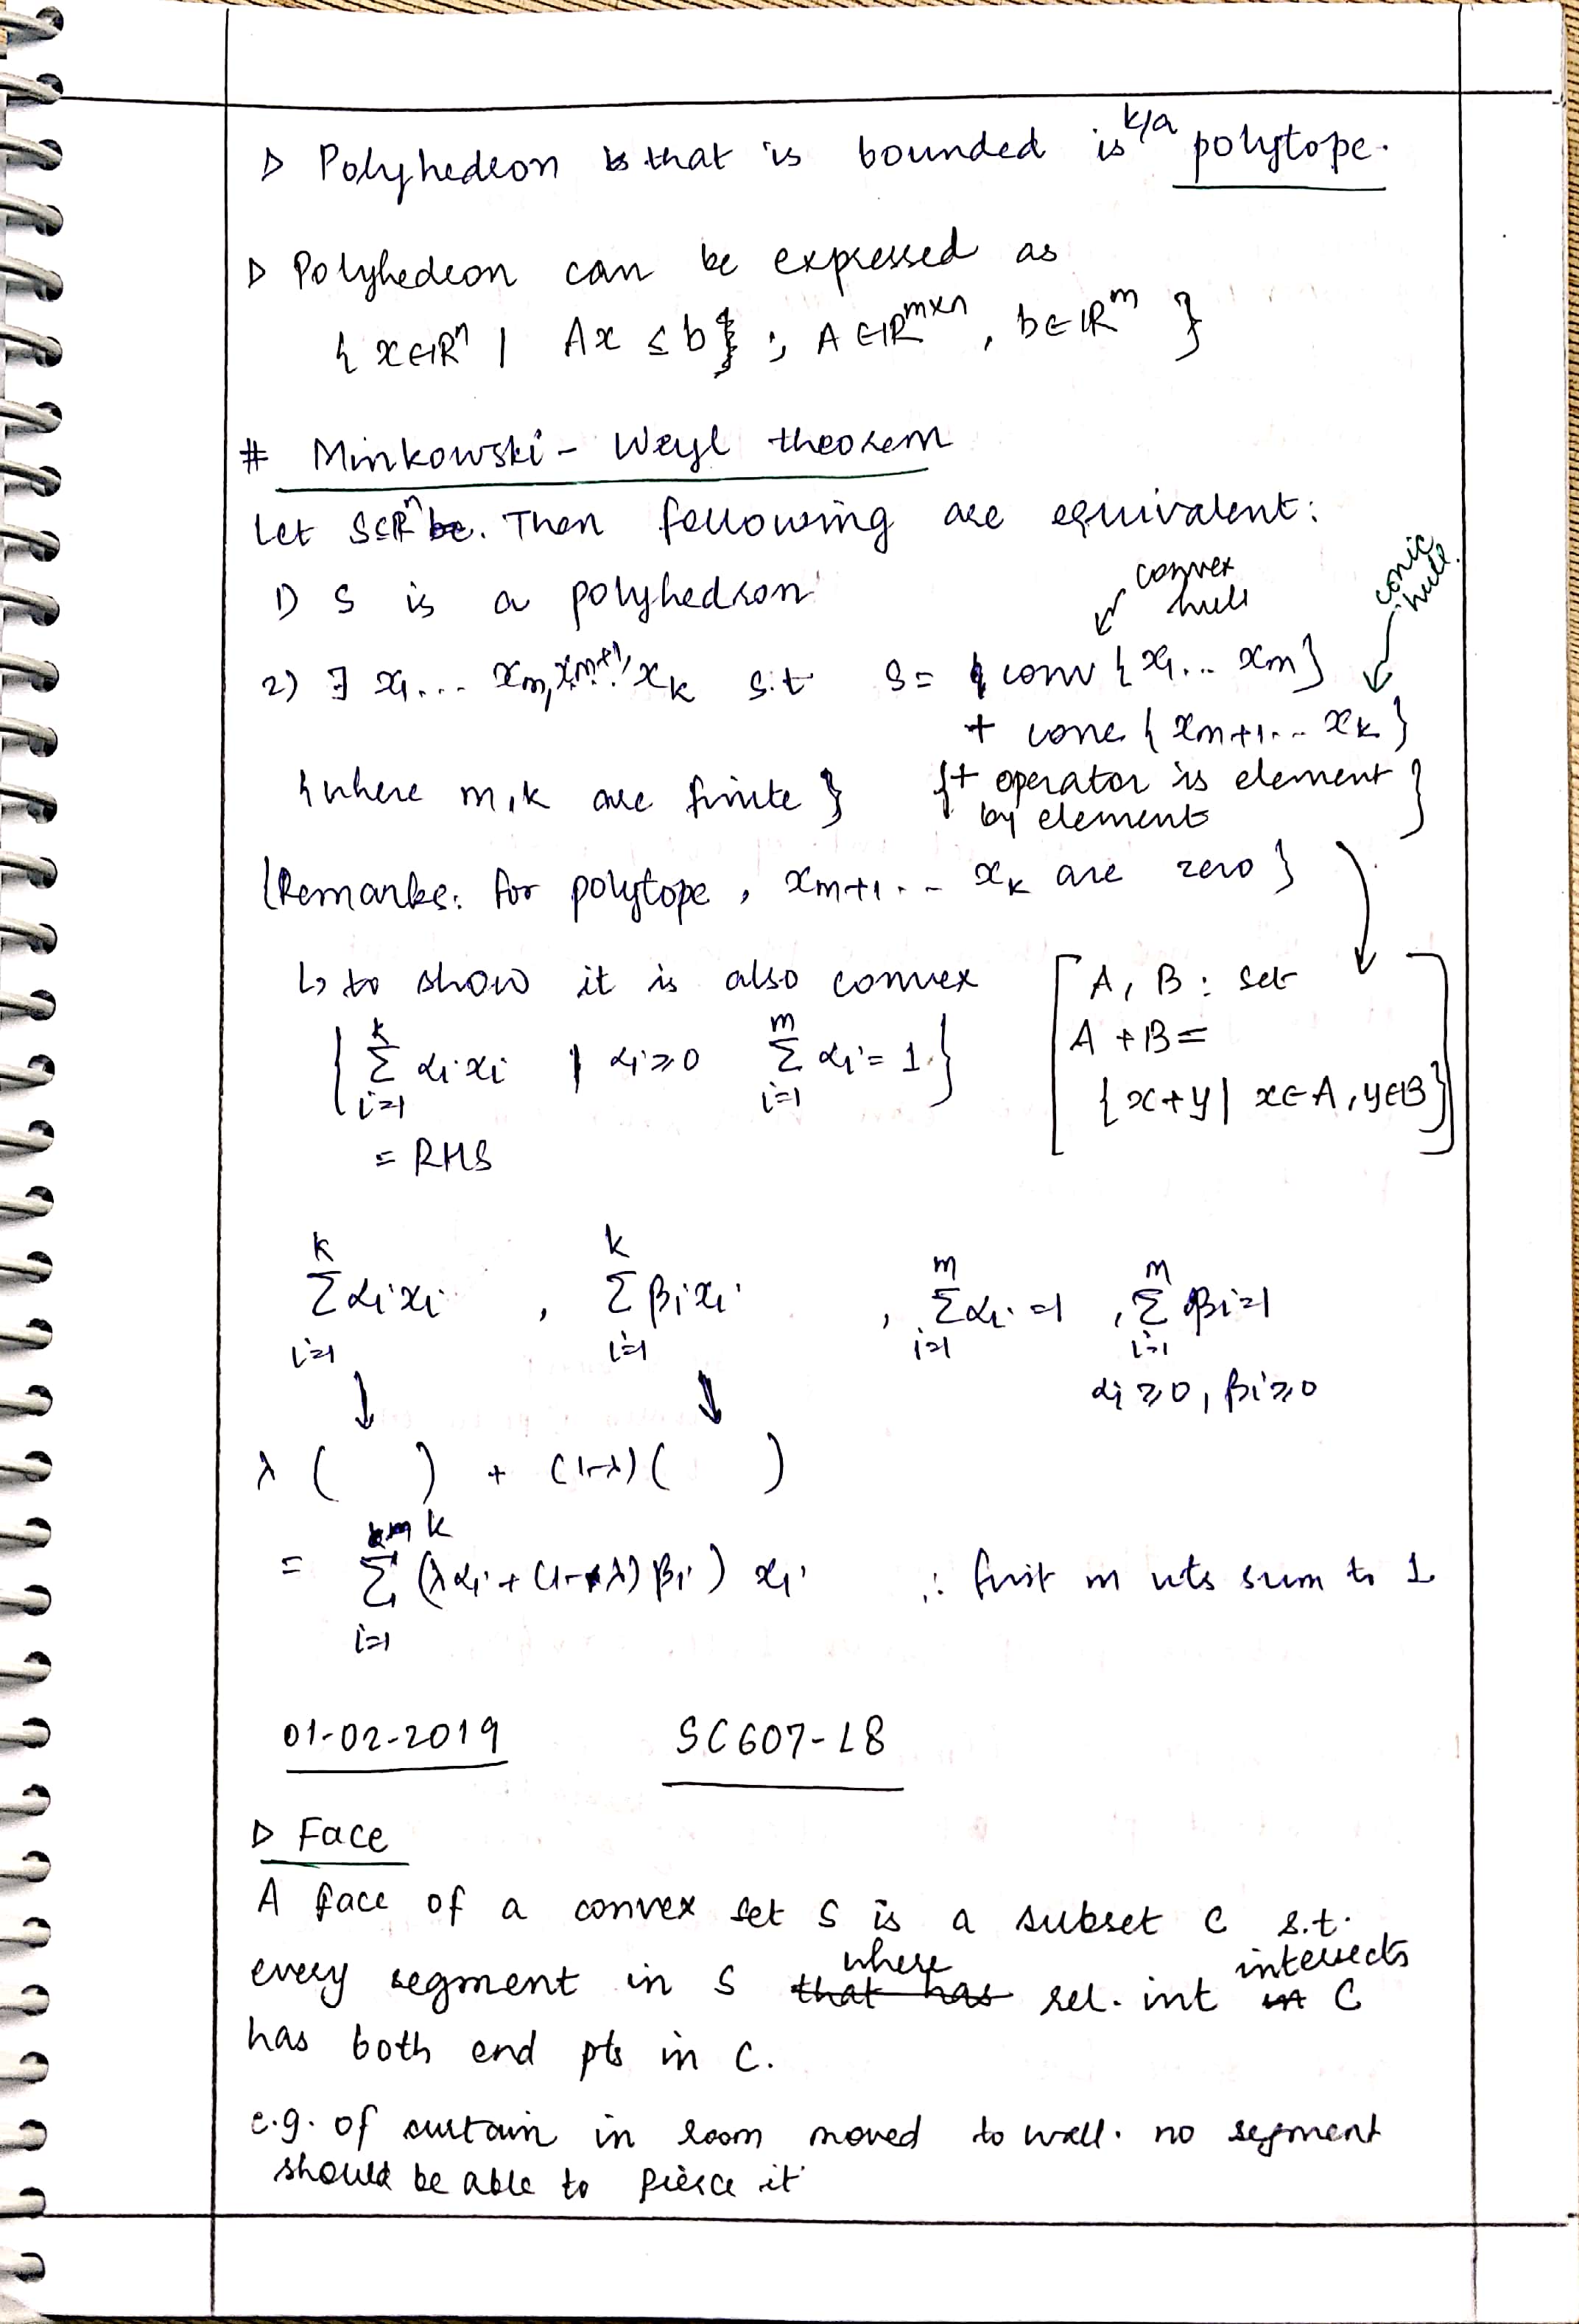 ▷ Polyhedron that is bounded is k/a polytope.
▷ Polyhedron can be expressed as
{ x∈ℝⁿ | Ax ≤ b } ; A ∈ ℝ^{m×n} , b ∈ ℝ^m }
# Minkowski - Weyl theorem
Let S⊆ℝⁿ. Then following are equivalent:
1) S is a polyhedron
convex hull
conic hull.
2) ∃ x₁... x_m, x_{m+1}... x_k s.t S = conv { x₁... x_m }
+ cone { x_{m+1}... x_k }
{ where m, k are finite } { + operator is element
by element }
{Remarks: for polytope, x_{m+1}... x_k are zero }
↳ to show it is also convex
{ Σ_{i=1}^{k} α_i x_i | α_i ≥ 0 Σ_{i=1}^{m} α_i = 1 }
= RHS
[ A, B : set
A + B =
{ x+y | x∈A, y∈B } ]
Σ_{i=1}^{k} α_i x_i , Σ_{i=1}^{k} β_i x_i , Σ_{i=1}^{m} α_i = 1 , Σ_{i=1}^{m} β_i = 1
α_i ≥ 0, β_i ≥ 0
λ ( ) + (1-λ) ( )
= Σ_{i=1}^{k} (λα_i + (1-λ) β_i ) x_i ∴ first m wts sum to 1
01-02-2019 SC607-L8
▷ Face
A face of a convex set S is a subset C s.t.
every segment in S where rel. int intersects C
has both end pts in C.
e.g. of curtain in room moved to wall. no segment
should be able to pierce it